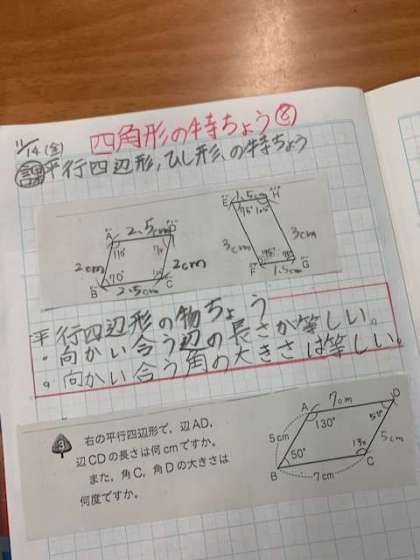 11/14(金)
四角形の特ちょう⑧
課 平行四辺形,ひし形,の特ちょう
A 2.5cm D
110° 70°
2cm 2cm
70° 110°
B 2.5cm C
E 1.5cm H
75° 105°
3cm 3cm
F G
1.5cm
平行四辺形の特ちょう
・向かい合う辺の長さが等しい。
・向かい合う角の大きさは等しい。
3 右の平行四辺形で,辺AD,
辺CDの長さは何cmですか。
また,角C,角Dの大きさは
何度ですか。
A 7cm D
130° 50°
5cm 5cm
50° 130
B 7cm C